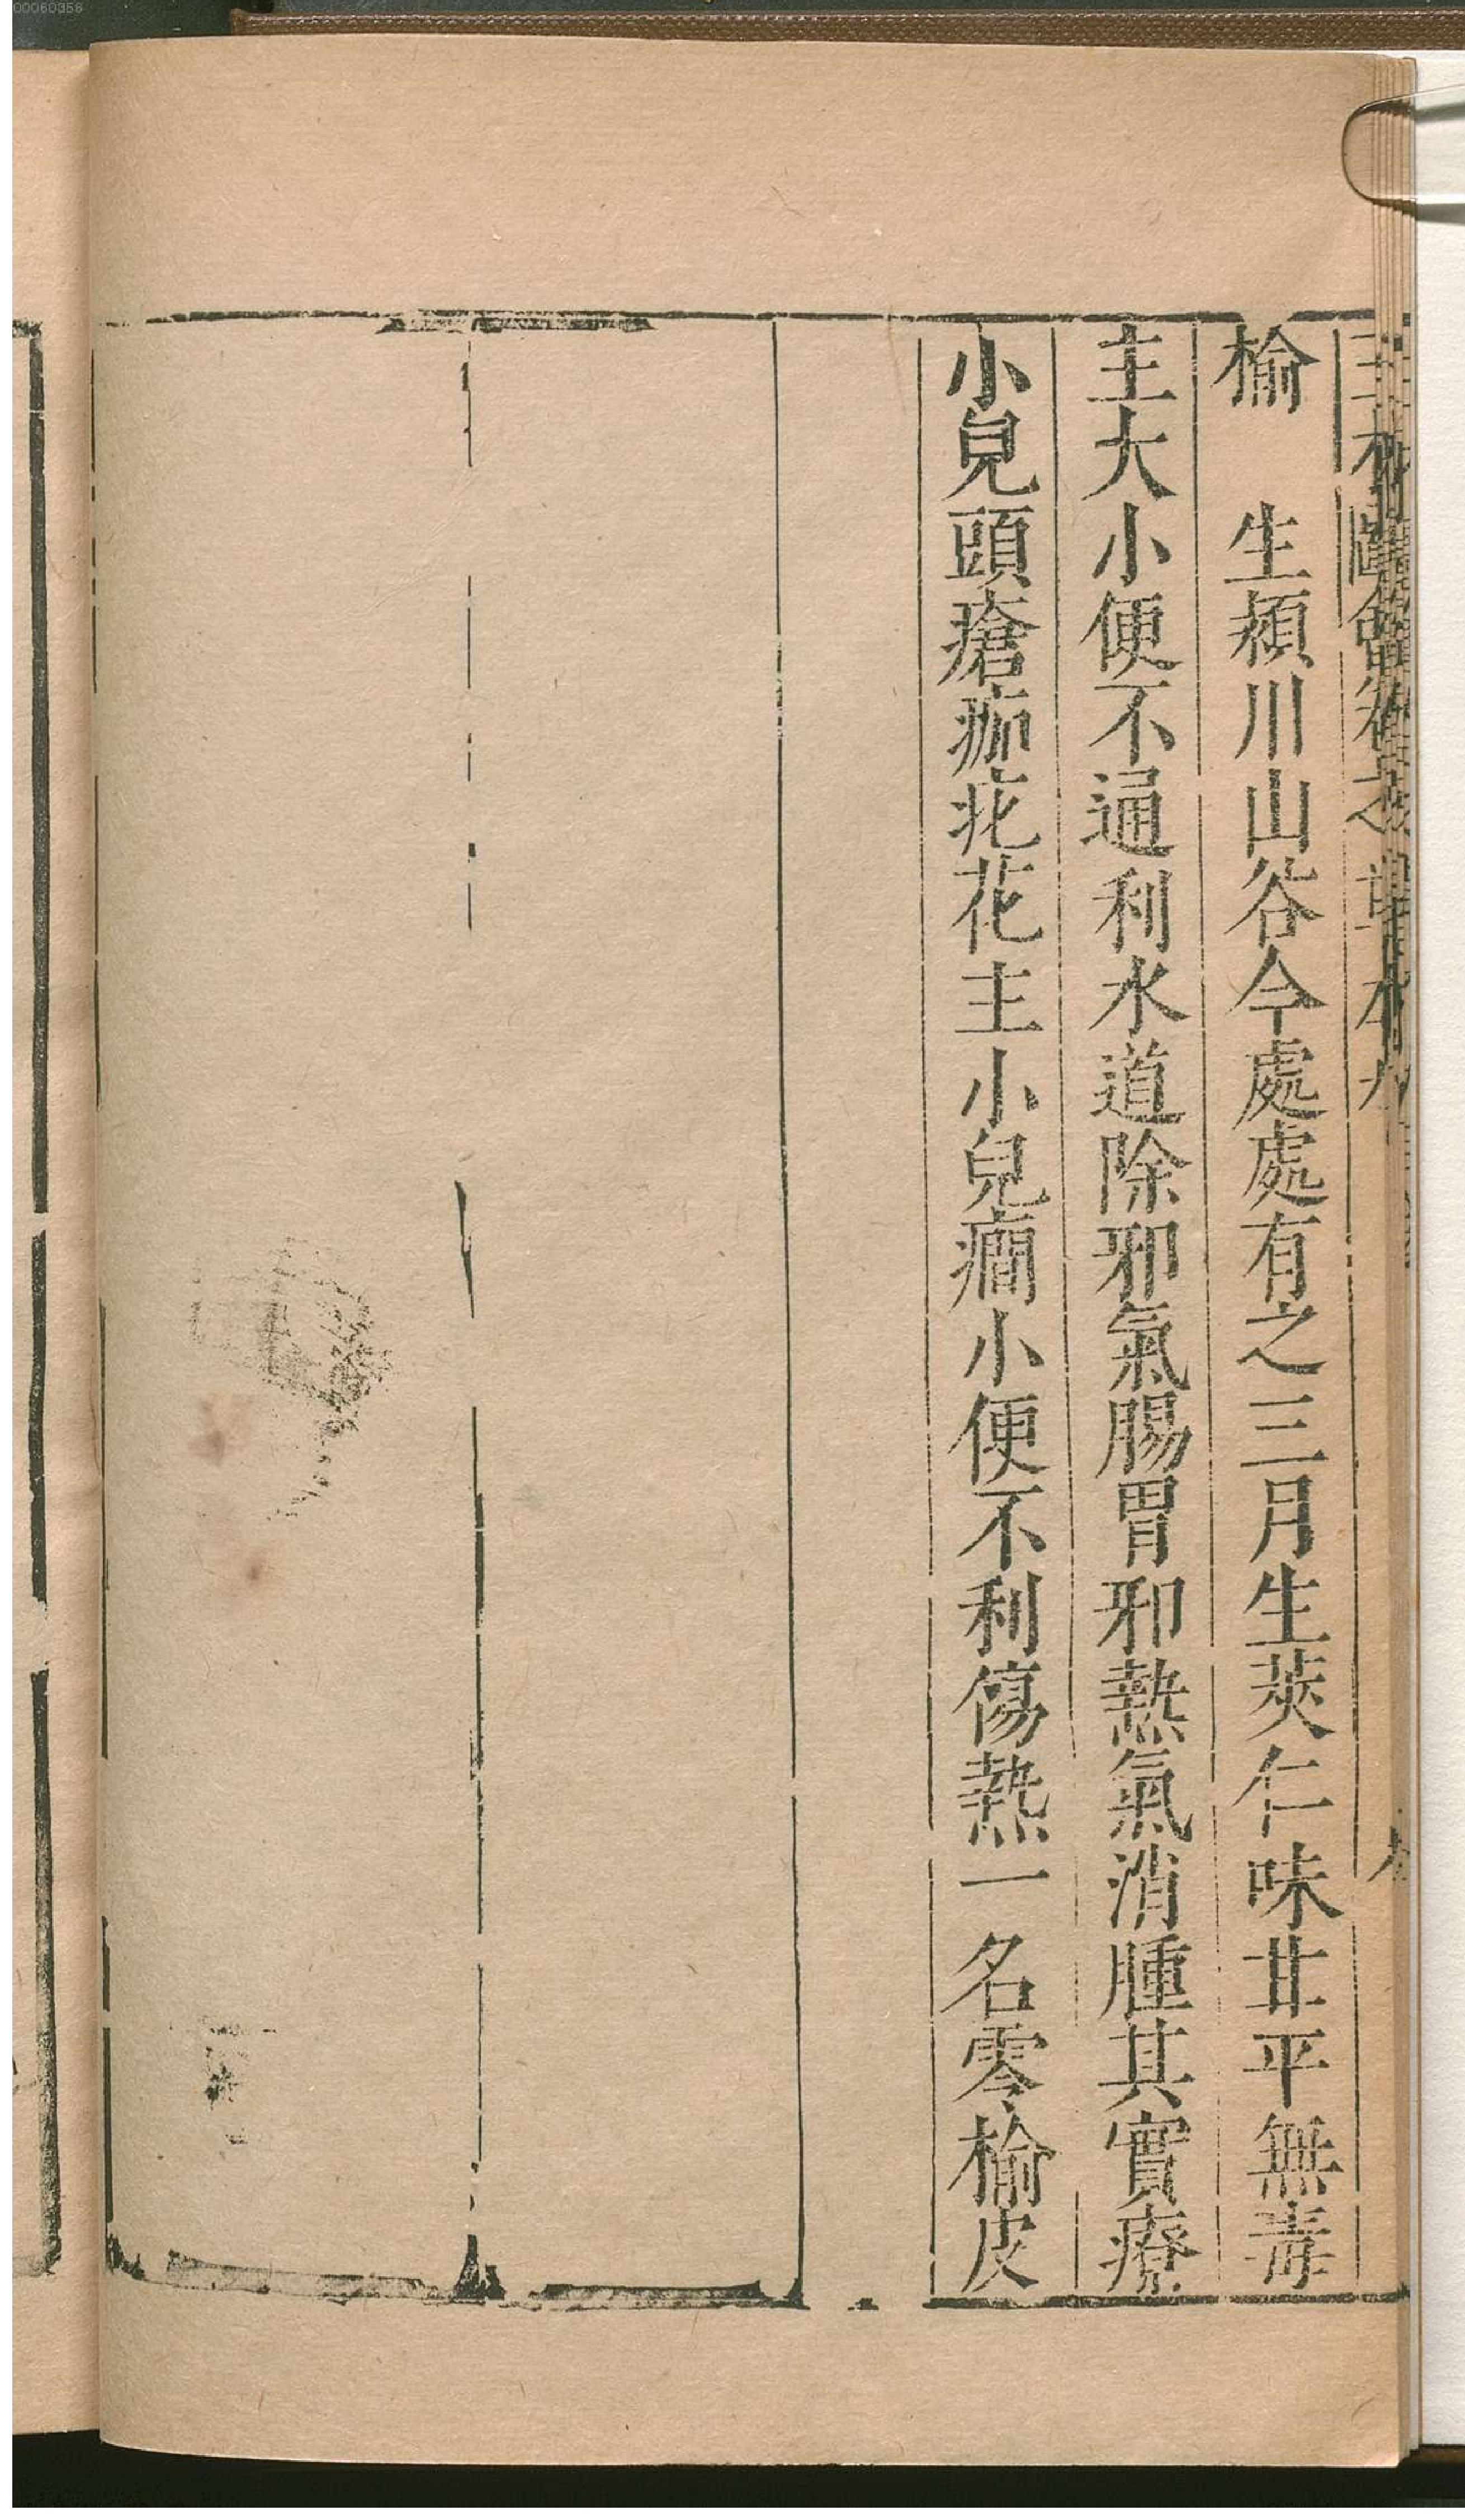 榆　生頴川山谷今處處有之三月生莢仁味甘平無毒
主大小便不通利水道除邪氣腸胃邪熱氣消腫其實療
小兒頭瘡痂疕花主小兒癎小便不利傷熱一名零榆皮
00060358